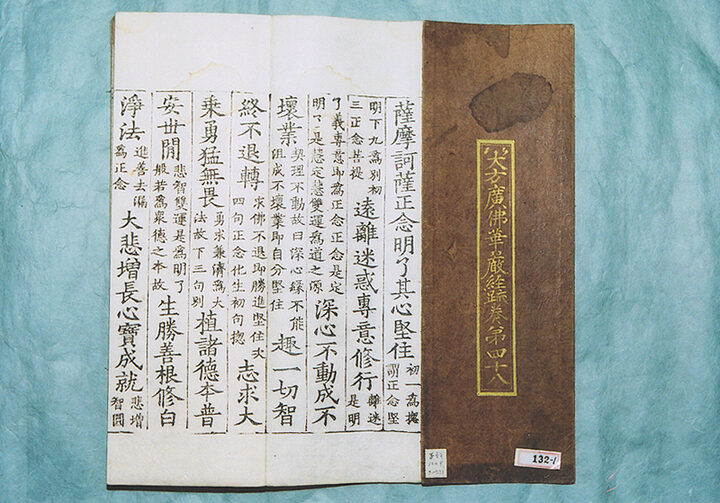 大方廣佛華嚴經疏卷第四十八
132-1
薩摩訶薩正念明了其心堅住 初一爲摠 謂正念堅
明下九爲別初 三正念菩提 遠離迷惑專意修行 離迷 是明
了義專意即爲正念正念是定 明了是慧定慧雙運爲道之源 深心不動成不
壞業 契理不動故曰深心緣不能 俎成不壞業即自分堅住 趣一切智
終不退轉 求佛不退即勝進堅住次 四句正念化生初句摠 志求大
乘勇猛無畏 勇求兼濟爲大 法故下三句別 植諸德本普
安世閒 悲智雙運是爲明了 般若爲衆德之本故 生勝善根修白
淨法 進善去漏 爲正念 大悲增長心寶成就 悲增 智圓